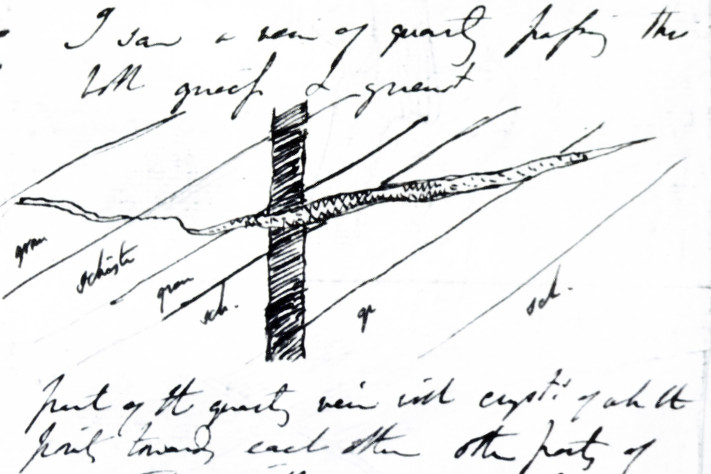 I saw a vein of quartz passing thro
both gneiss &
gran
schists
gran
sch.
gr
sch.
part of the quartz vein with cryst.s of wh the
points towards each other other parts of